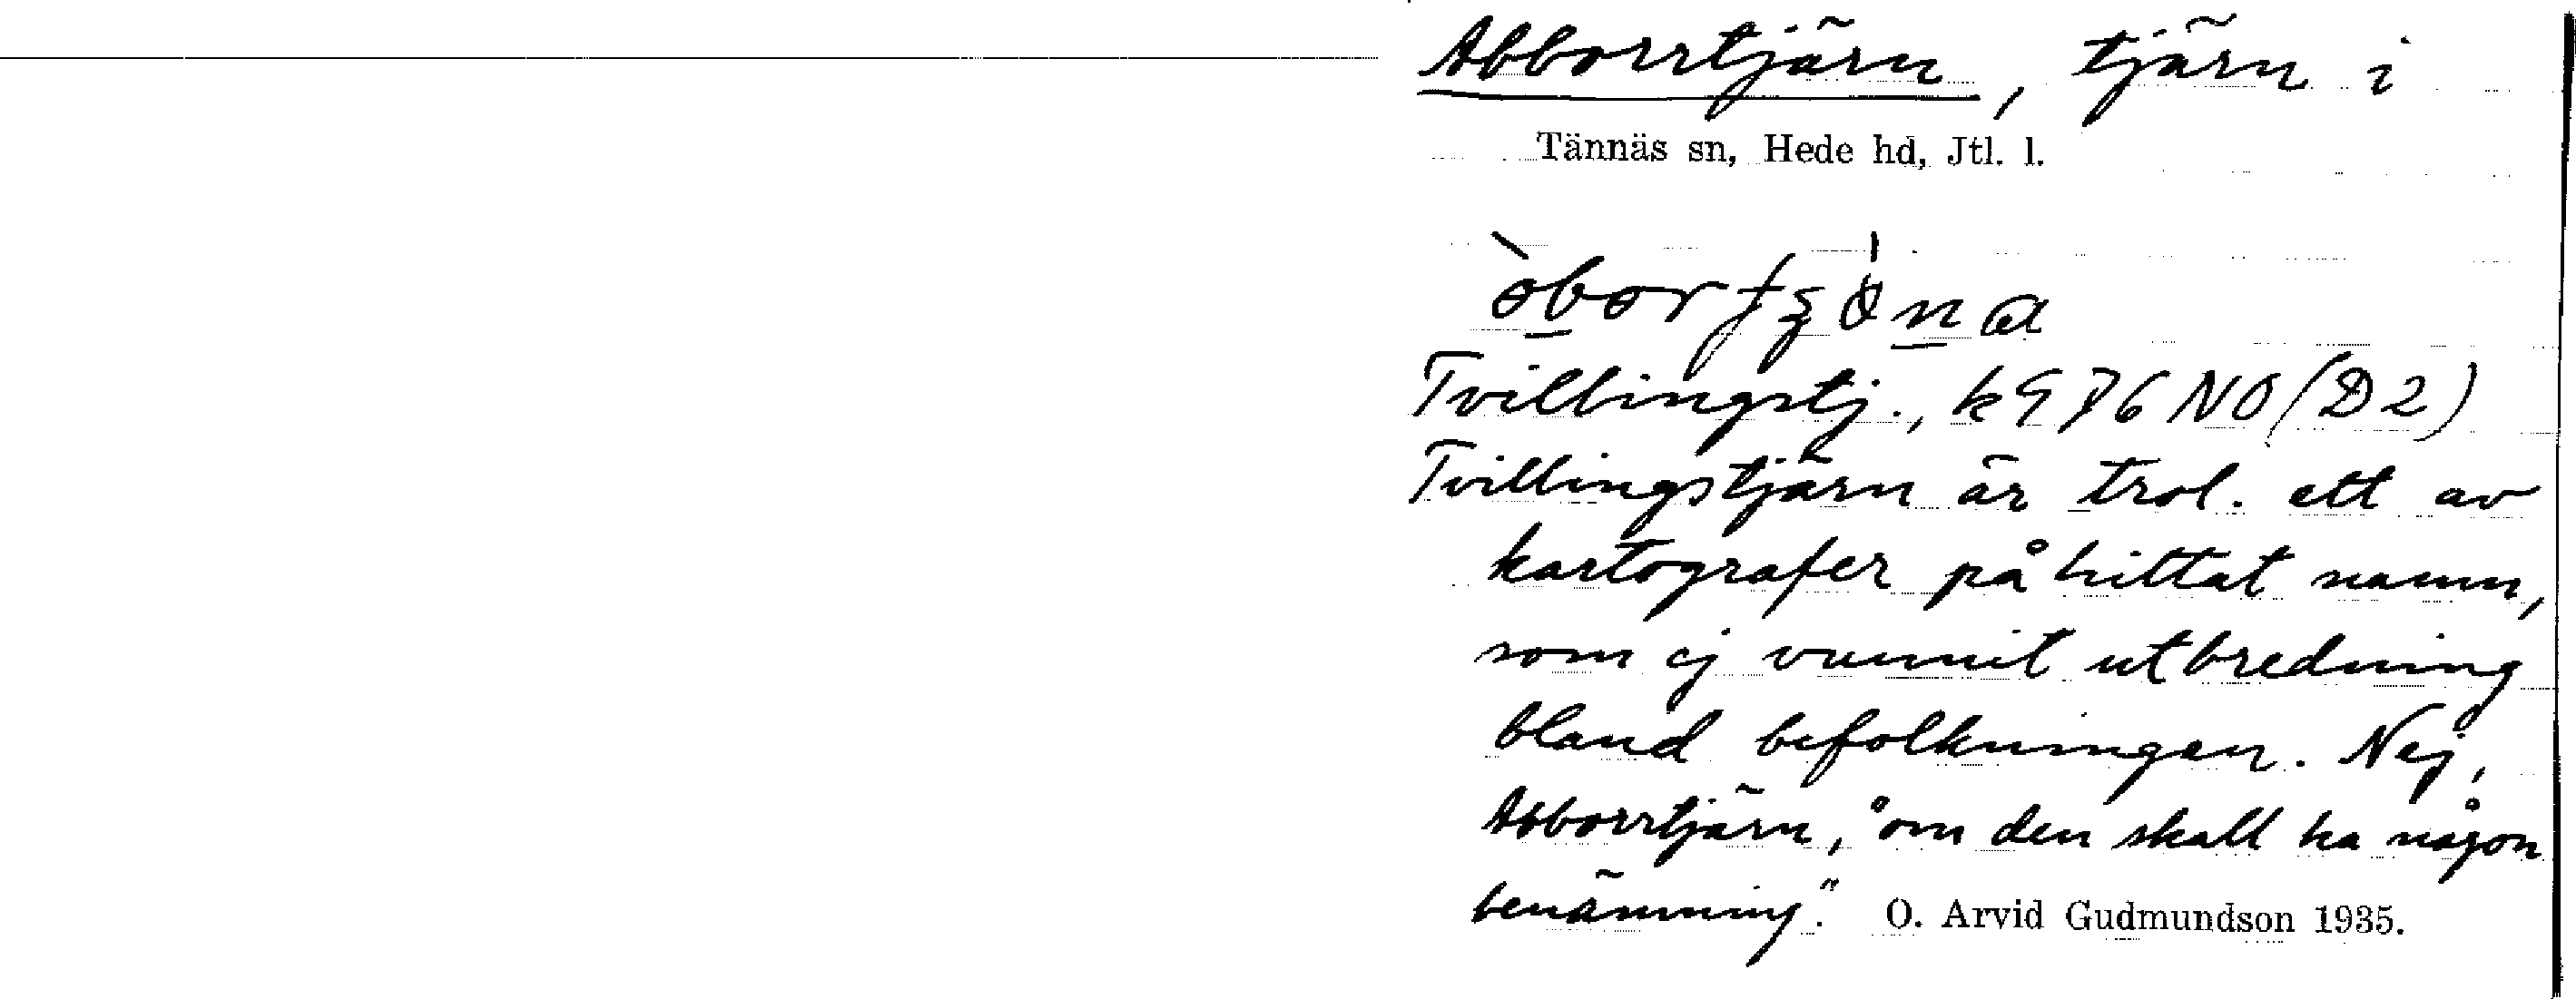 Abborrtjärn, tjärn i
Tännäs sn, Hede hd, Jtl. l.
Tvillingstj., k976NO(D2)
Tvillingstjärn är trol. ett av
kartografer påhittat namn,
som ej vunnit utbredning
bland befolkningen. Nej,
Abborrtjärn, "om den skall ha någon
benämning". O. Arvid Gudmundson 1935.